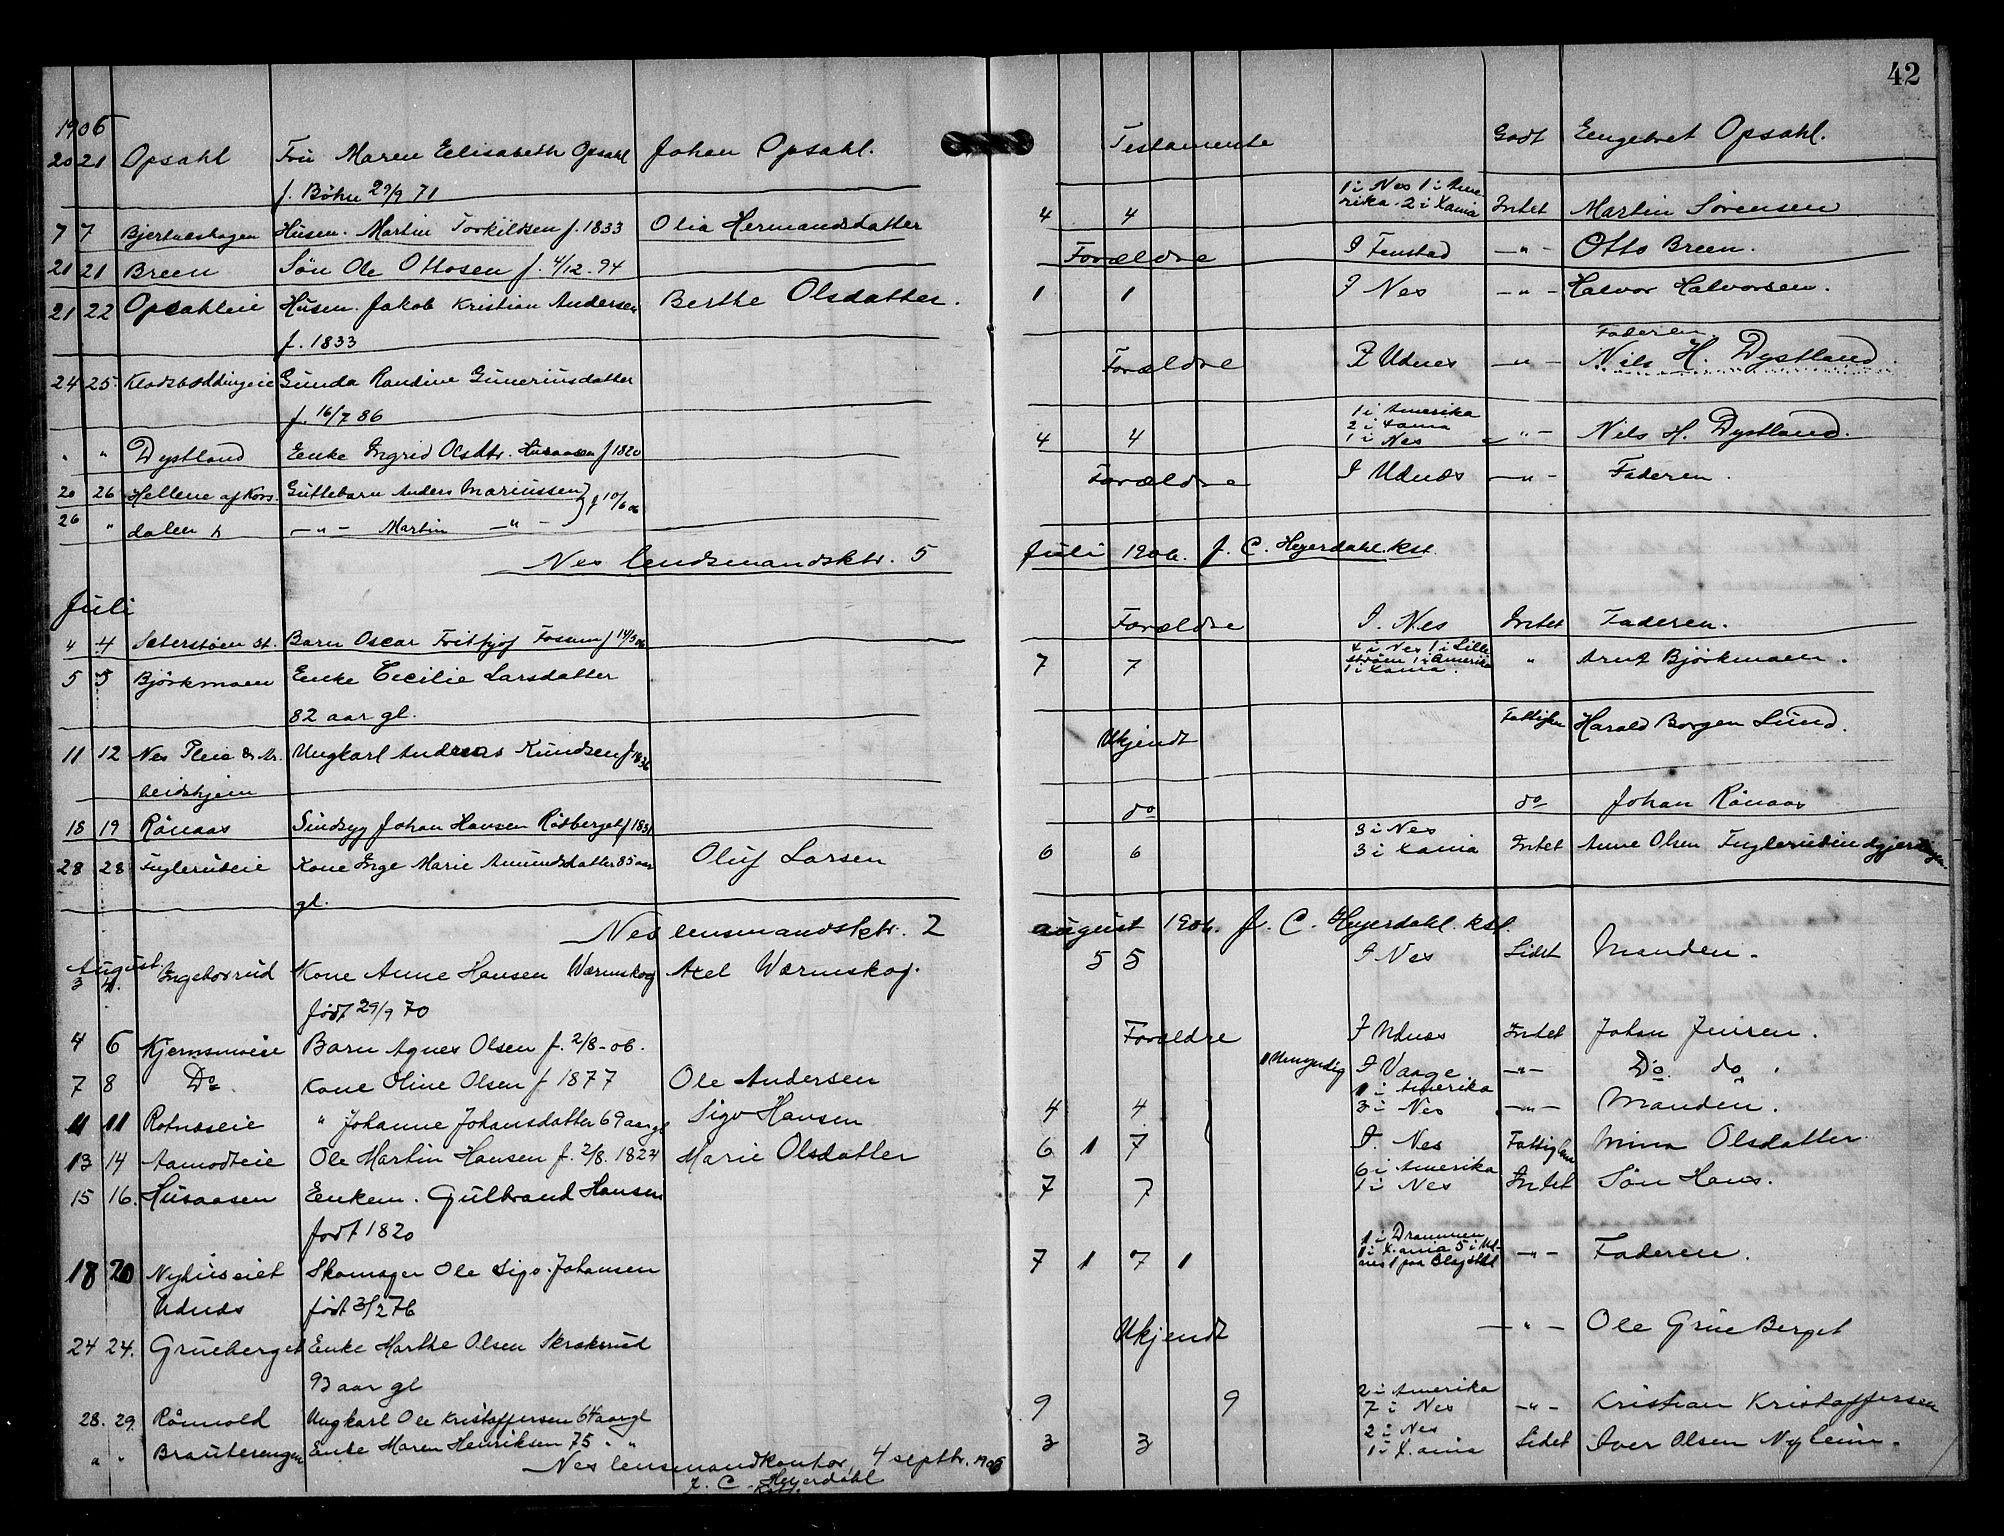 42
1906
20 21 Opsahl Fru Maren Elisabeth Opsahl Johan Opsahl. Testamente Godt Engebret Opsahl.
f. Bøhn 29/9 71
7 7 Husm. Martin Torkildsen f. 1833 Olia Hermandsdatter 4 4 1 i Nes 1 i Ame
rika. 2 i Xania Intet Martin Sørensen
21 21 Breen Søn Ole Ottosen f. 4/12-94 Forældre I Fenstad -"- Otto Breen.
21 22 Opsahleie Husm. Jakob Kristian Andersen Berthe Olsdatter. 1 1 I Nes -"- Halvor Halvorsen.
f. 1833
Faderen
24 25. Gunda Randine Guneriusdatter Forældre I Udnes -"- Nils H. Dystland.
f. 16/7 86
" " Dystland Enke Ingrid Olsdtr. Husaasen f 1820 4 4 1 i Amerika
2 i Xania
1 i Nes -"- Nils H. Dystland.
20 26 Hellene af Kors. Guttebarn Anders Mariussen } f 10/6 06 Forældre I Udnæs -"- Faderen.
26 " dalen -"- Martin -"-
Nes lendsmandsktr. 5 Juli 1906. J. C. Heyerdahl. kst.
Juli
4 4 Sæterstøen st. Barn Oscar Fritjof Fossum f 14/3 06 Forældre I. Nes Intet Faderen.
5 5 Bjørkmoen Enke Cecilie Larsdatter 7 7 4 i Nes 1 i Lille
strøm 1 i Amerika
1 i Xania. " Arnt Bjørkmoen.
82 aar gl.
11 12 Nes Pleie & Ar. Ungkarl Andreas Kundsen f 1836 Ukjendt Fattiglem Harald Borgen Lund.
beidshjem
18 19 Rønaas Sindsyg Johan Hansen Rødberget f 1831 do do Johan Rønaas
28 28 Fuglerudeie Kone Inge Marie Amundsdatter 85 aar Oluf Larsen 6 6 3 i Nes
3 i Xania Intet Anne Olsen
gl.
Nes lensmandsktr. 2 august 1906. J. C. Heyerdahl. kst.
August.
3 4. Ingeborrud Kone Anne Hansen Wærmskog Axel Wærmskog. 5 5 I Nes Lidet Manden.
født 29/9 70
4 6 Kjernsmoeie Barn Agnes Olsen f. 2/8-06. Forældre I Udnæs Intet Johan Jensen.
7 8 Do. Kone Oline Olsen f 1877 Ole Andersen 1 Umyndig I Vaage -"- Do. do.
11 11 Rotnæseie " Johanne Johansdatter 69 aar gl Sigv Hansen 4 4 1 i Amerika
3 i Nes -"- Manden.
13 14 Aamodteie Ole Martin Hansen f. 2/8. 1824 Marie Olsdatter 6 1 7 I. Nes Fattiglem Mina Olsdatter.
15 16. Husaasen Enkem. Gulbrand Hansen 7 7 6 i Amerika
1 i Nes Intet Søn Hans.
født 1820
18 20 Nyhuseiet Skomager Ole Sigv. Johansen 7 1 7 1 1 i Drammen
1 i X.ania 5 i Ud-
nes 1 paa -"- Faderen.
Udnæs født 3/2 76
24 24. Grueberget Enke Marthe Olsen Skrakerud Ukjendt -"- Ole Grue Berget
93 aar gl
28. 29. Rømnold Ungkarl Ole Kristoffersen 64 aar gl 9 9 2 i Amerika
7 i Nes -"- Kristian Kristoffersen
" " Brauterengen Enke Maren Henriksen 75 " " 3 3 2 i Nes
1 i X.ania Lidet Iver Olsen Nyleim.
Nes lensmandkontor, 4 septbr. 1906
J. C. Heyerdahl